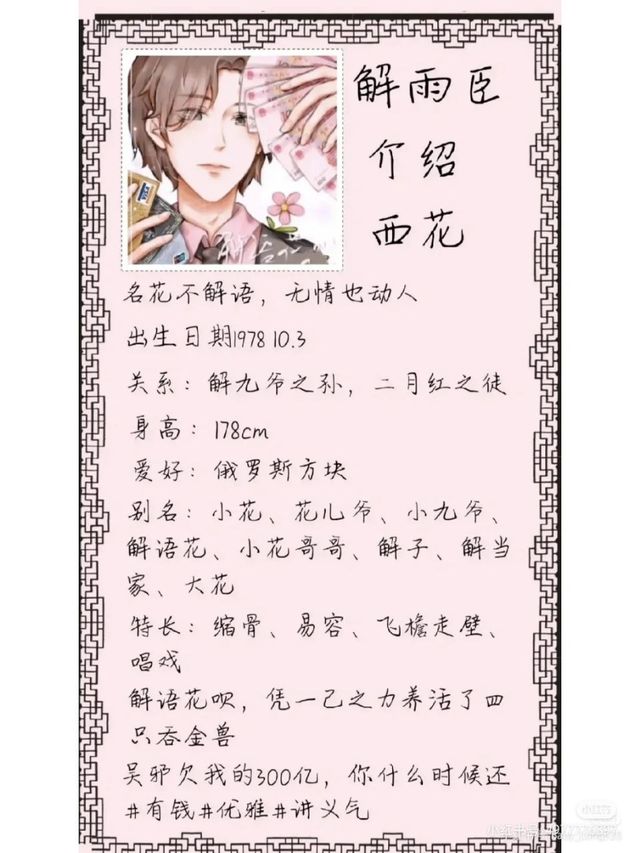 解雨臣
介绍
西花
VISA
名花不解语，无情也动人
出生日期1978 10.3
关系：解九爷之孙，二月红之徒
身高：178cm
爱好：俄罗斯方块
别名：小花、花儿爷、小九爷、
解语花、小花哥哥、解子、解当
家、大花
特长：缩骨、易容、飞檐走壁、
唱戏
解语花呗，凭一己之力养活了四
只吞金兽
吴邪欠我的300亿，你什么时候还
#有钱#优雅#讲义气
小红书